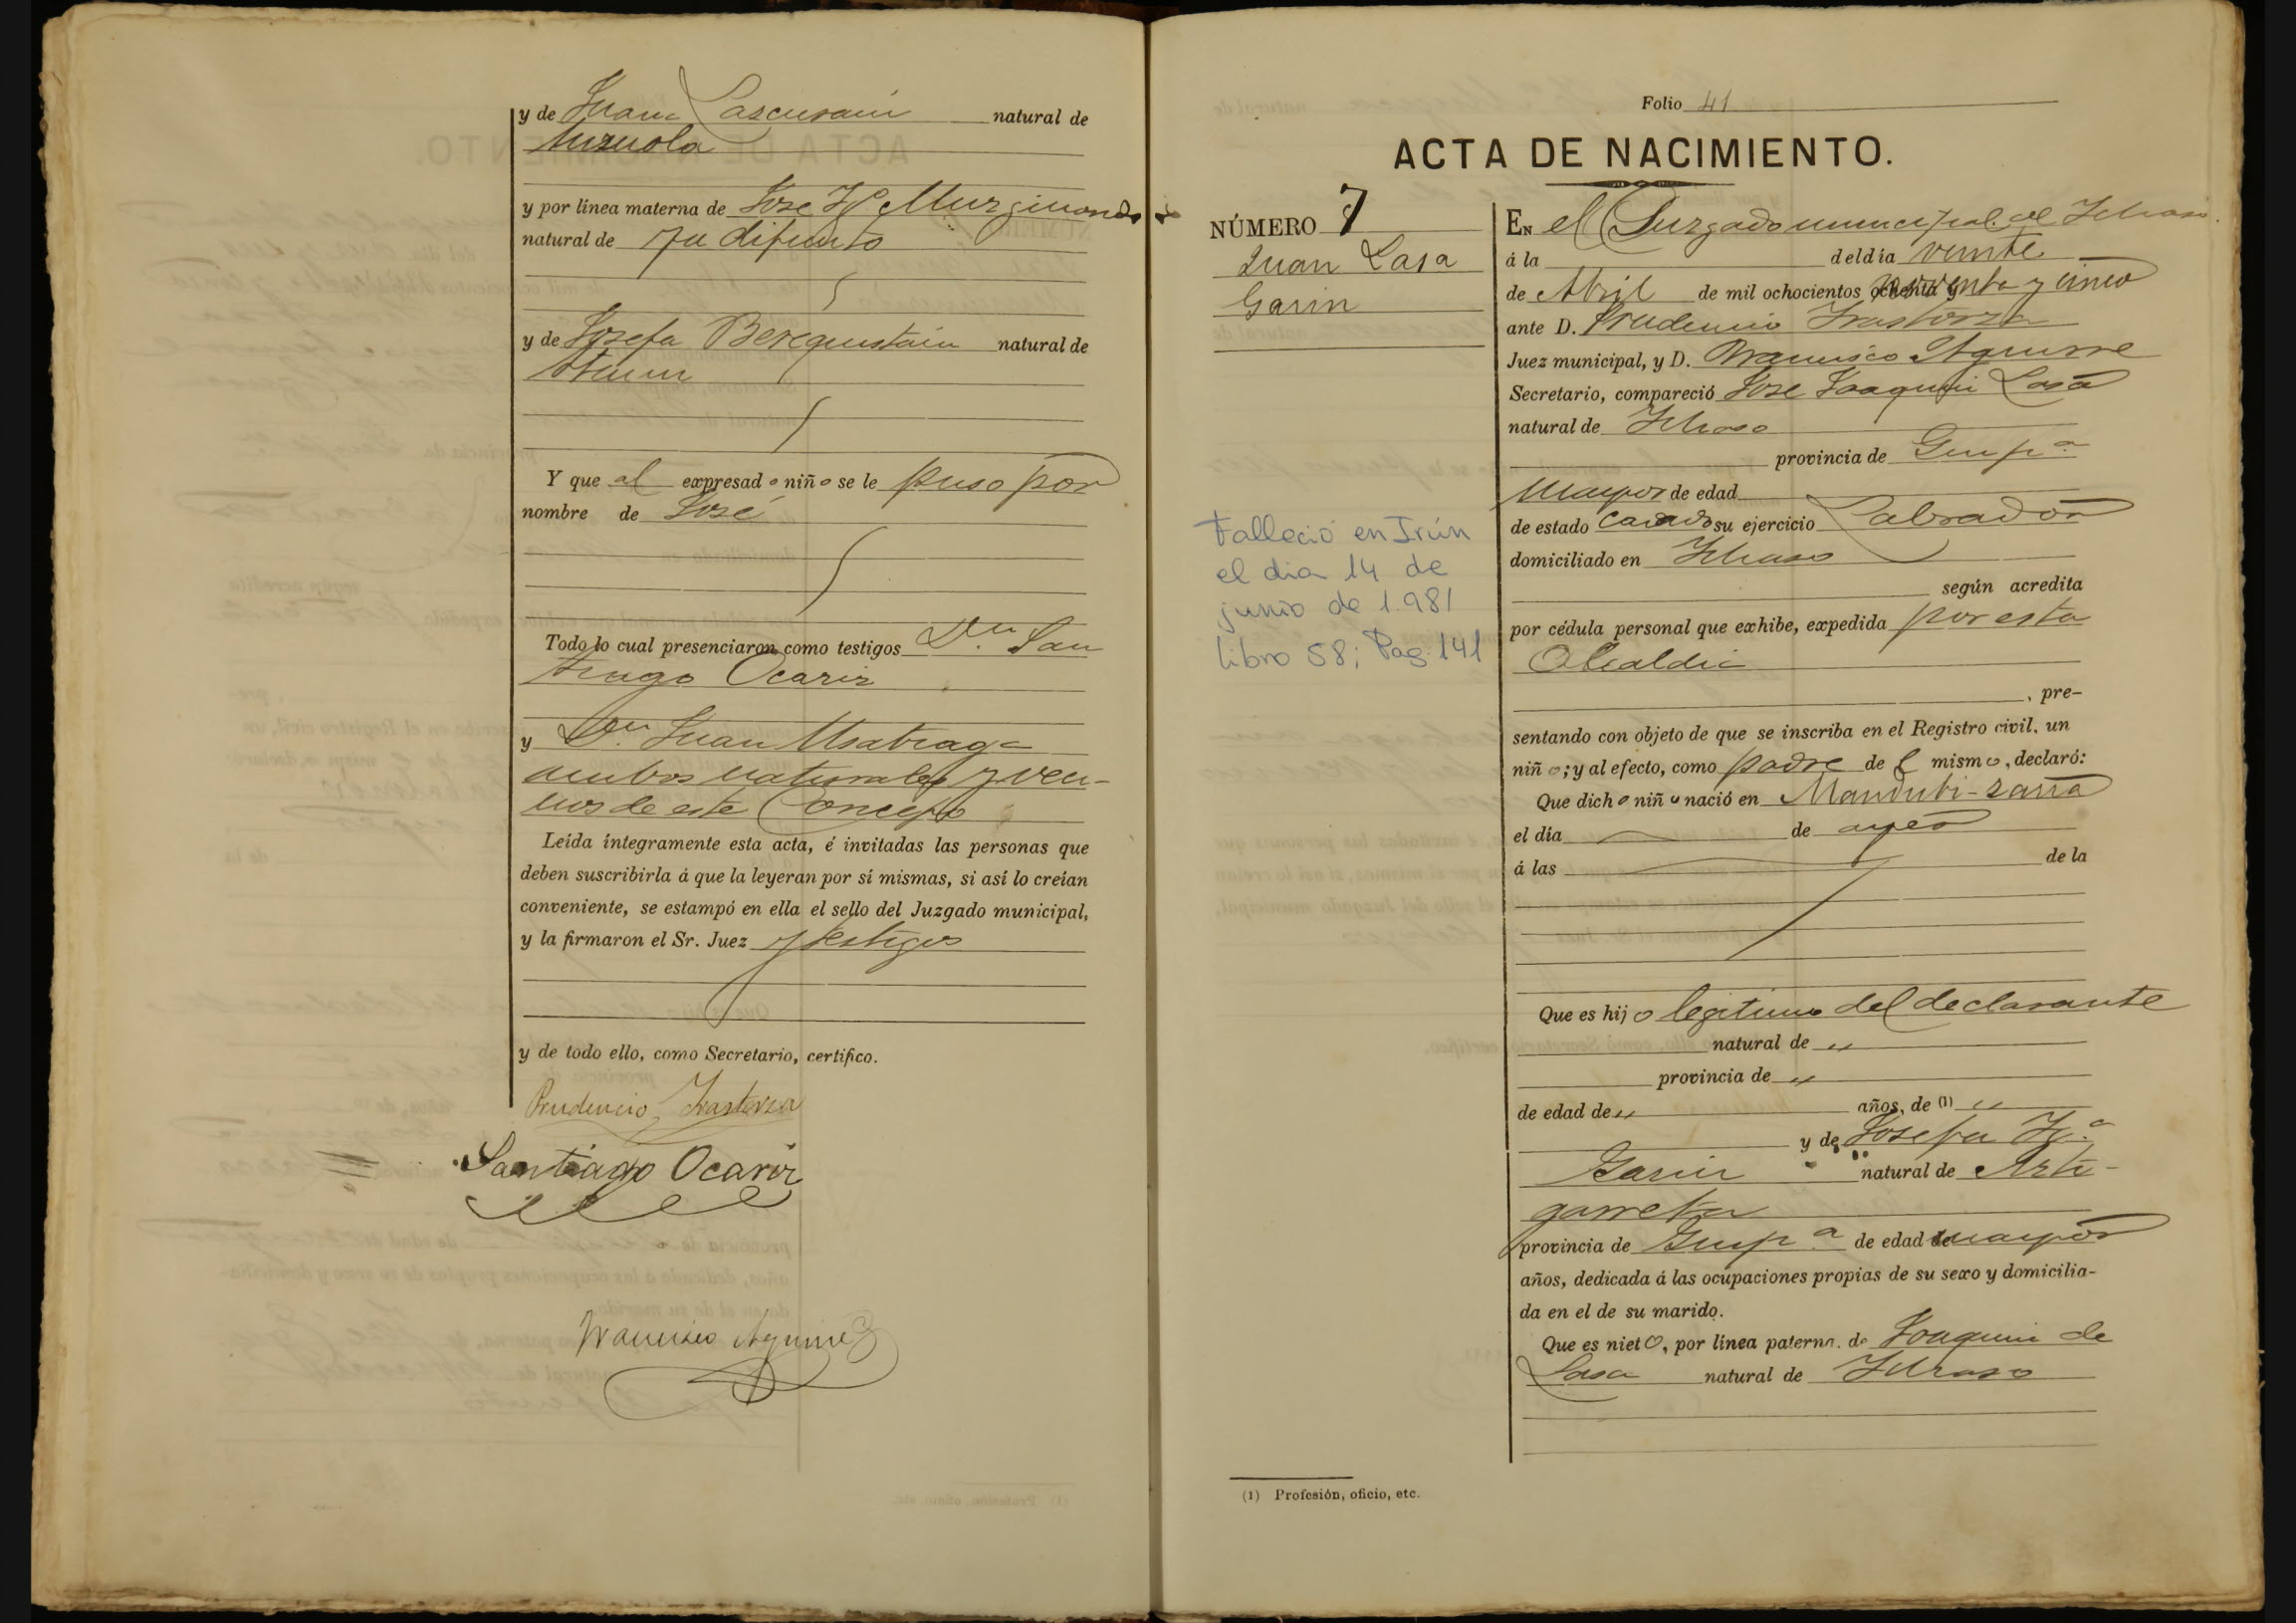 y de Juana Lascurain natural de
Anzuola
y por línea materna de José Ygº Murguiondo
natural de ya difunto
y de Josefa Bereguistain natural de
Ataun
Y que al expresado niño se le puso por
nombre de José
Todo lo cual presenciaron como testigos Dn. San
tiago Ocariz
y Dn. Juan Usabiaga
ambos naturales y veci-
nos de este Concejo
Leída íntegramente esta acta, é invitadas las personas que
deben suscribirla á que la leyeran por sí mismas, si así lo creían
conveniente, se estampó en ella el sello del Juzgado municipal,
y la firmaron el Sr. Juez y testigos
y de todo ello, como Secretario, certifico.
Prudencio Irastorza
Santiago Ocariz
Francisco Aguirre
Folio 41
ACTA DE NACIMIENTO.
NÚMERO 7
Juan Lasa
Garin
Falleció en Irún
el dia 14 de
junio de 1.981
libro 58; Pag. 141
EN el Juzgado municipal de Ichaso
á la del día veinte
de Abril de mil ochocientos noventa y cinco
ante D. Prudencio Irastorza
Juez municipal, y D. Francisco Aguirre
Secretario, compareció José Joaquin Lasa
natural de Ichaso
provincia de Guipª
Mayor de edad
de estado casado su ejercicio Labrador
domiciliado en Ichaso
según acredita
por cédula personal que exhibe, expedida por esta
Alcaldia
, pre-
sentando con objeto de que se inscriba en el Registro civil, un
niño; y al efecto, como padre de l mismo, declaró:
Que dicho niño nació en Mandubi-zarra
el día de ayer
á las de la
Que es hijo legitimo del declarante
natural de "
provincia de "
de edad de " años, de (1) "
y de Josefa Yª
Garin natural de Arti-
garreta
provincia de Guipª de edad de mayor
años, dedicada á las ocupaciones propias de su sexo y domicilia-
da en el de su marido.
Que es nieto, por línea paterna, de Joaquin de
Lasa natural de Ichaso
(1) Profesión, oficio, etc.